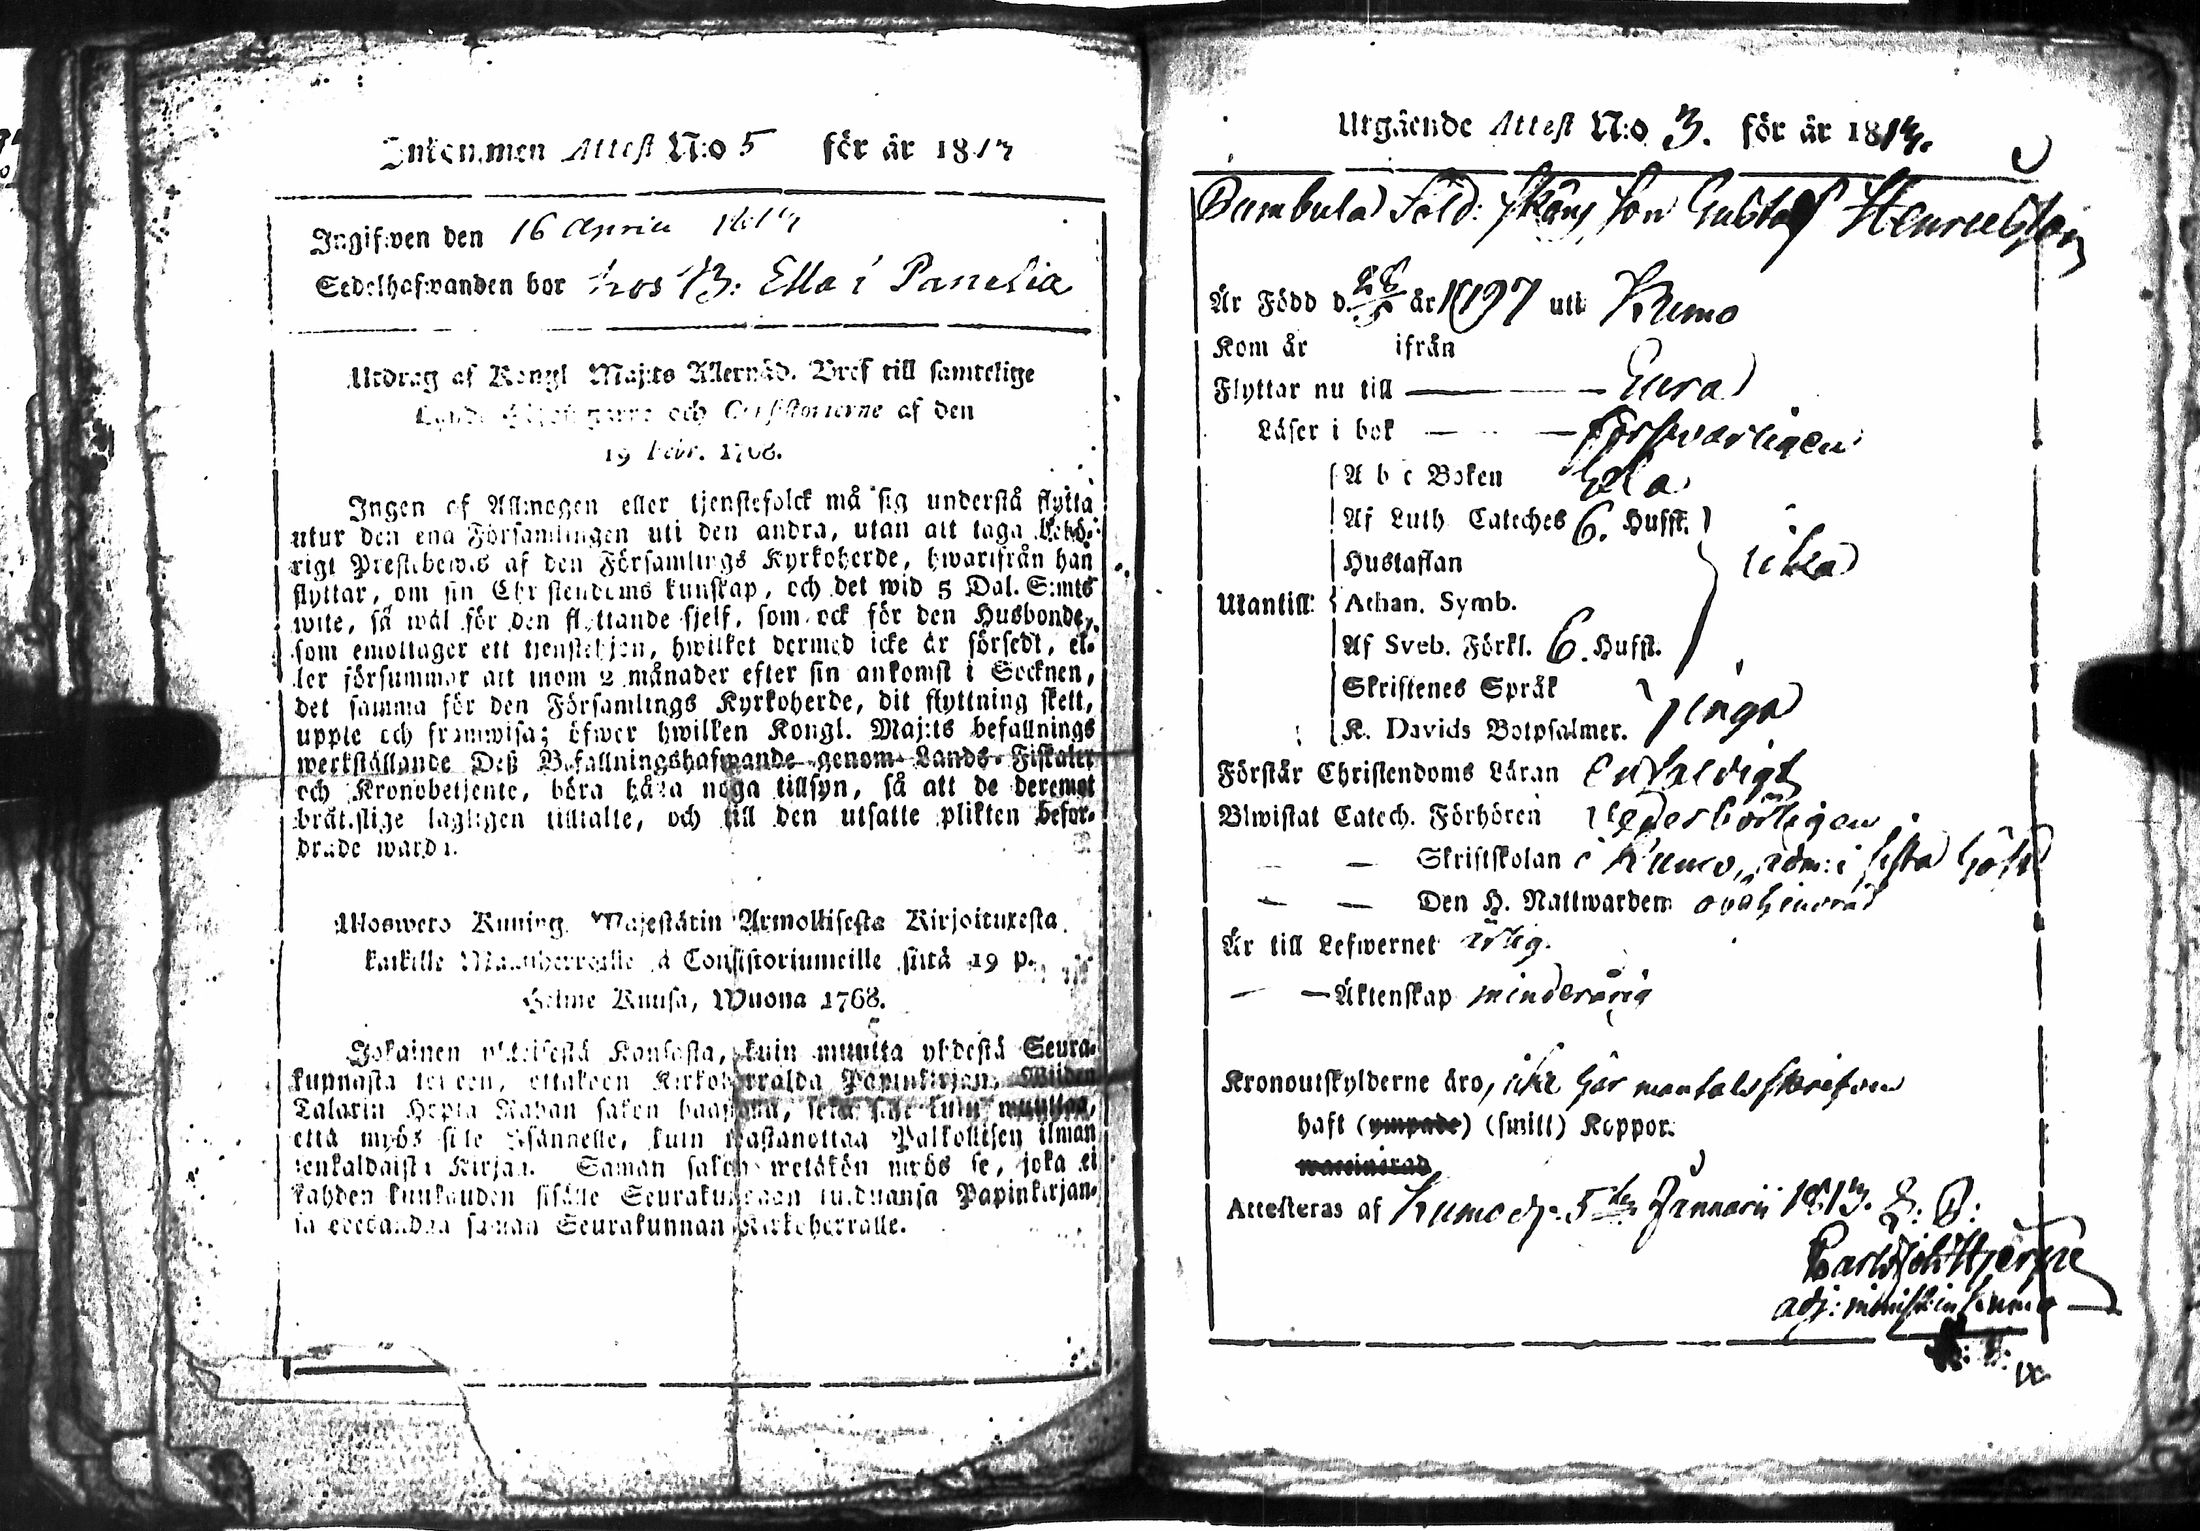 Inkommen Attest N:o 5 för år 1813
Ingifwen den 16 April 1813
Sedelhafwanden bor hos B: Ella i Panelia
Utdrag af Kongl. Maj:ts Allernåd. Bref till samtelige
och Consistorierne af den
19 Febr. 1768.
Ingen af Allmogen eller tjenstefolck må sig understå flytta
utur den ena Församlingen uti den andra, utan att taga behö-
rigt Prestebewis af den Församlings Kyrkoherde, hwarifrån han
flyttar, om sin Christendoms kunskap, och det wid 5 Dal. S:mts
wite, så wäl för den flyttande sjelf, som ock för den Husbonde,
som emottager ett tjenstehjon, hwilket dermed icke är försedt, el-
ler försummar att inom 2 månader efter sin ankomst i Socknen,
det samma för den Församlings Kyrkoherde, dit flyttning skett,
uppte och framwisa; öfwer hwilken Kongl. Maj:ts befallnings
werkställande Deß Befallningshafwande genom Lands-Fiskaler
och Kronobetjente, böra hafwa noga tillsyn, så att de deremot
brätslige lagligen tilltalte, och till den utsatte plikten befor-
drade warda.
Ullosweto Kuning. Majestätin Armollisesta Kirjoituxesta
kaikille Maanherroille ja Consistoriumeille siitä 19 p.
Helme Kuusa, Wuona 1768.
Jokainen yhteisestä Kansasta, kuin muutta yhdestä Seura-
kunnasta toiseen, ottakoon Kirkoherralda Papinkirjan, Wiiden
Talarin Hopia Rahan sakon haastolla, sekä sille kuin muuttaa,
että myös sille Isännelle, kuin wastanottaa Palkollisen ilman
senkaldaista Kirjaa. Saman sakon wetäkön myös se, joka ei
kahden kuukauden sisälle Seurakundaan tulduansa Papinkirjan-
sa edesanna saman Seurakunnan Kirkoherralle.
Utgående Attest N:o 3. för år 1813.
Bambula Sold: Skång son Gustaf Henricsson
Är Född d. 28 år 1797 uti Kumo
Kom år ifrån
Flyttar nu till — Eura
Läser i bok — — försvarligen
A b c Boken Hela
Af Luth. Cateches 6. Hufst.
Hustaflan lika
Utantill: Athan. Symb.
Af Sveb. Förkl. 6. Hufst.
Skriftenes Språk
K. Davids Botpsalmer. inga
Förstår Christendoms Läran enfaldigt
Biwistat Catech. Förhören vederbörligen
— — Skriftskolan i Kumo, adm: i sista höst
— — Den H. Nattwarden
Är till Lefwernet ärlig.
— — Äktenskap minderårig
Kronoutskylderne äro, icke här mantalsskrifven
haft (ympade) (smitt) Koppor.
waccinerad
Attesteras af Kumo d. 5te Januarii 1813.
adj: minist: in Kumo